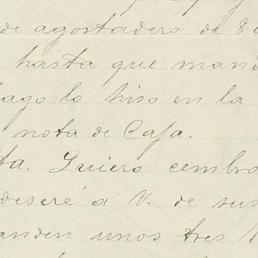 de agostadero de 8 c
hasta que mand
ago lo hiso en la
nota de Caja.
ta. Quiero cembra
deseré á V. de sus
anden unos tres